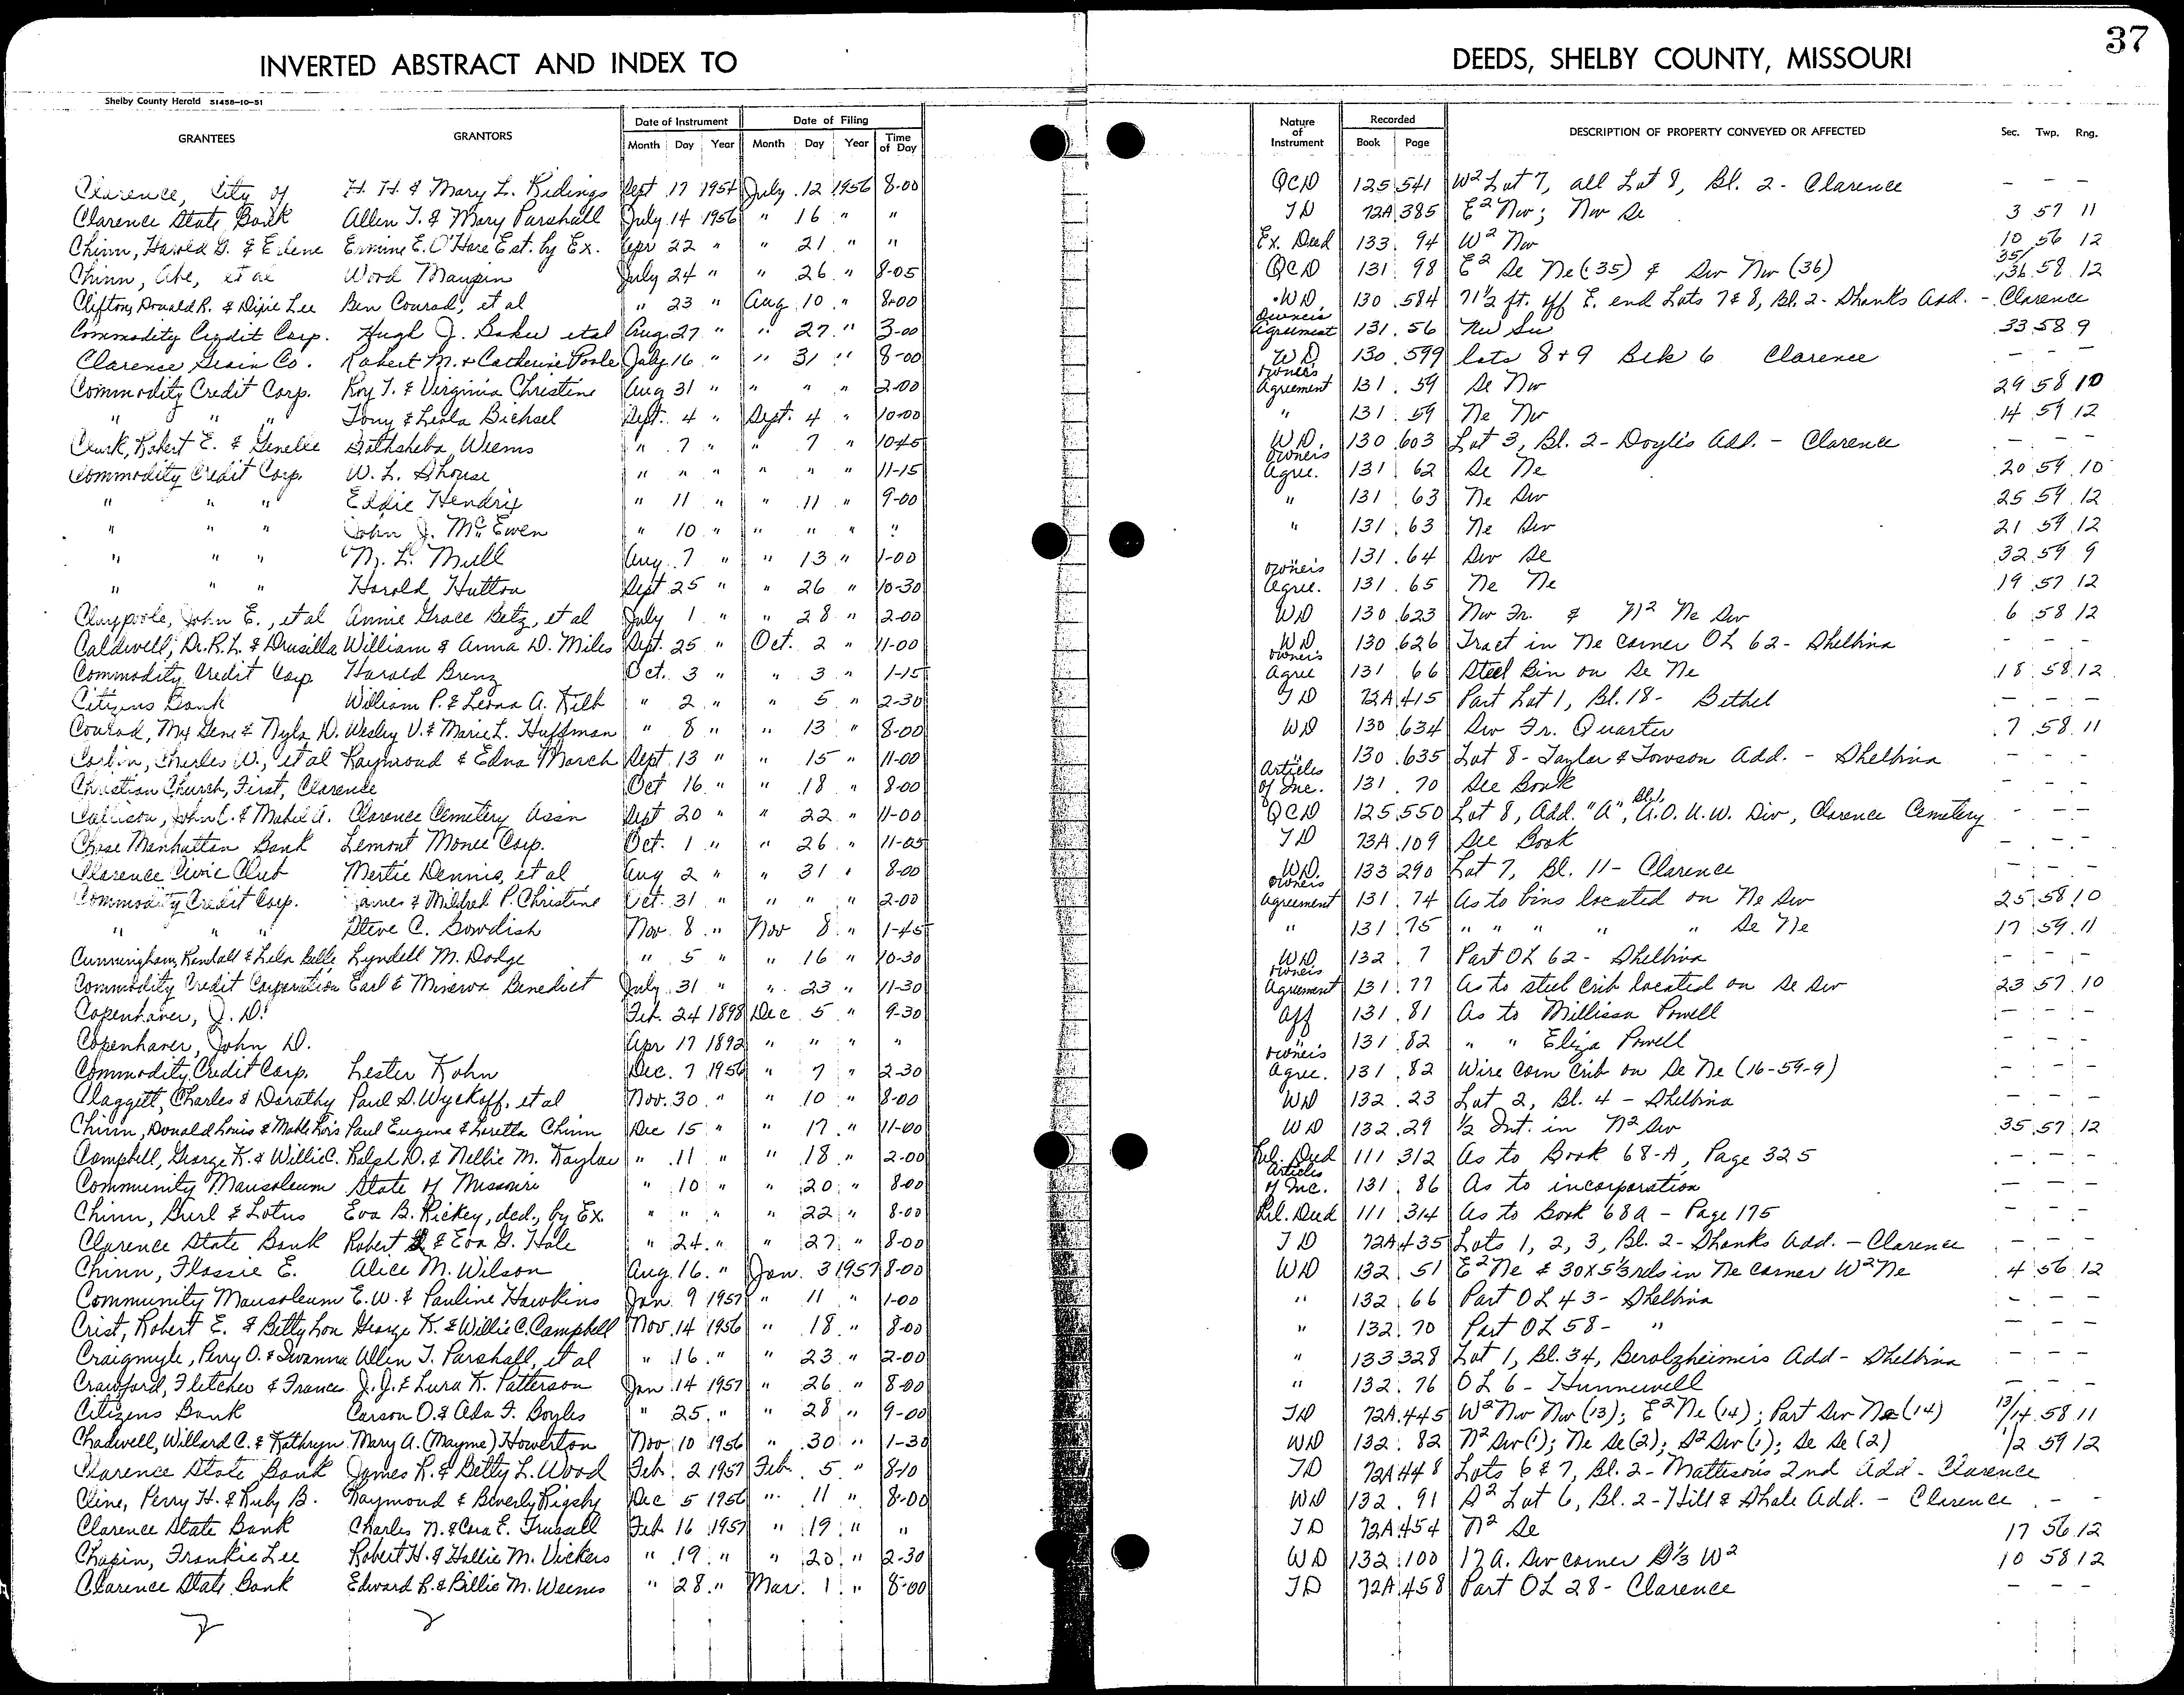 37
INVERTED ABSTRACT AND INDEX TO DEEDS, SHELBY COUNTY, MISSOURI
Shelby County Herald 51458-10-51
GRANTEES GRANTORS Date of Instrument Date of Filing Nature of Instrument Recorded DESCRIPTION OF PROPERTY CONVEYED OR AFFECTED Sec. Twp. Rng.
Month Day Year Month Day Year Time of Day Book Page
Clarence, City of H. H. & Mary L. Ridings Sept 17 1954 July 12 1956 8-00 QCD 125 541 W2 Lot 7, all Lot 8, Bl. 2 - Clarence - - -
Clarence State Bank Allen T. & Mary Parshall July 14 1956 " 16 " " TD 72A 385 E2 Nw; Nw Se 3 57 11
Chinn, Harold G. & Edene Ermine E. O'Hare Est. by Ex. Apr 22 " " 21 " " Ex. Deed 133 94 W2 Nw 10 56 12
Chinn, Abe, et al Wood Maupin July 24 " " 26 " 8-05 QCD 131 98 E2 Se Ne (35) & Sw Nw (36) 35/36 58 12
Clifton, Donald R. & Dixie Lee Ben Conrad, et al " 23 " Aug 10 " 8-00 WD 130 584 71 1/2 ft. off E. end Lots 7 & 8, Bl. 2 - Shanks Add. - Clarence
Commodity Credit Corp. Hugh J. Baker et al Aug 27 " " 27 " 3-00 Owners Agreement 131 56 Nw Sw 33 58 9
Clarence Grain Co. Robert M. + Catherine Poole July 16 " " 31 " 8-00 WD 130 599 lots 8 + 9 Blk 6 Clarence - - -
Commodity Credit Corp. Roy T. & Virginia Christine Aug 31 " " " " 2-00 Owners Agreement 131 59 Se Nw 29 58 10
" " " Tony & Leola Bichsel Sept. 4 " Sept. 4 " 10-00 " 131 59 Ne Nw 14 59 12
Clark, Robert E. & Genelle Bathsheba Weems " 7 " " 7 " 10-45 WD. 130 603 Lot 3, Bl. 2 - Doyle's Add. - Clarence - - -
Commodity Credit Corp. W. L. Shouse " " " " " " 11-15 Owners Agree. 131 62 Se Ne 20 59 10
" " " Eddie Hendrix " 11 " " 11 " 9-00 " 131 63 Ne Sw 25 59 12
" " " John J. McEwen " 10 " " " " " " 131 63 Ne Sw 21 59 12
" " " M. L. Mull Aug 7 " " 13 " 1-00 " 131 64 Sw Se 32 59 9
" " " Harold Hutton Sept 25 " " 26 " 10-30 Owners Agree. 131 65 Ne Ne 19 57 12
Claypoole, John E., et al Annie Grace Betz, et al July 1 " " 28 " 2-00 WD 130 623 Nw Fr. & N2 Ne Sw 6 58 12
Caldwell, Dr. R. L. & Drusilla William & Anna D. Miles Sept. 25 " Oct. 2 " 11-00 WD 130 626 Tract in Ne corner OL 62 - Shelbina - - -
Commodity Credit Corp Harold Brenz Oct. 3 " " 3 " 1-15 Owners Agree 131 66 Steel Bin on Se Ne 18 58 12
Citizens Bank William P. & Leona A. Kilb " 2 " " 5 " 2-30 TD 72A 415 Part Lot 1, Bl. 18 - Bethel - - -
Conrad, Max Gene & Nyla D. Wesley V. & Marie L. Huffman " 8 " " 13 " 8-00 WD 130 634 Sw Fr. Quarter 7 58 11
Corbin, Charles W., et al Raymond & Edna March Sept 13 " " 15 " 11-00 " 130 635 Lot 8 - Taylor & Towson Add. - Shelbina - - -
Christian Church, First, Clarence Oct 16 " " 18 " 8-00 Articles of Inc. 131 70 See Book - - -
Callison, John C. & Mabel A. Clarence Cemetery Assn Sept 20 " " 22 " 11-00 QCD 125 550 Lot 8, Add. "A", Bl. 1, A.O.U.W. Div, Clarence Cemetery - - -
Chase Manhattan Bank Lemont Monee Corp. Oct. 1 " " 26 " 11-05 TD 73A 109 See Book - - -
Clarence Civic Club Mertie Dennis, et al Aug 2 " " 31 " 8-00 WD. 133 290 Lot 7, Bl. 11 - Clarence - - -
Commodity Credit Corp. James & Mildred P. Christine Oct. 31 " " " " 2-00 Owners Agreement 131 74 As to bins located on Ne Sw 25 58 10
" " " Steve C. Gowdish Nov. 8 " Nov 8 " 1-45 " 131 75 " " " " " Se Ne 17 59 11
Cunningham, Kendall & Lela Belle Lyndell M. Dodge " 5 " " 16 " 10-30 WD 132 7 Part OL 62 - Shelbina - - -
Commodity Credit Corporation Earl & Minerva Benedict July 31 " " 23 " 11-30 Owners Agreement 131 77 As to steel crib located on Se Sw 23 57 10
Copenhaver, J. D. Feb. 24 1898 Dec 5 " 9-30 Aff 131 81 As to Millissa Powell - - -
Copenhaver, John D. Apr 17 1892 " " " " " 131 82 " " Eliza Powell - - -
Commodity Credit Corp. Lester Kohn Dec. 7 1956 " 7 " 2-30 Owners Agree. 131 82 Wire corn crib on Se Ne (16-59-9) - - -
Claggett, Charles & Dorothy Paul S. Wyckoff, et al Nov. 30 " " 10 " 8-00 WD 132 23 Lot 2, Bl. 4 - Shelbina - - -
Chinn, Donald Louis & Mable Lois Paul Eugene & Loretta Chinn Dec 15 " " 17 " 11-00 WD 132 29 1/2 Int. in N2 Sw 35 57 12
Campbell, George K. & Willie C. Ralph D. & Nellie M. Kaylor " 11 " " 18 " 2-00 Rel. Deed 111 312 As to Book 68-A, Page 325 - - -
Community Mausoleum State of Missouri " 10 " " 20 " 8-00 Articles of Inc. 131 86 As to incorporation - - -
Chinn, Burl & Lotus Eva B. Rickey, ded., by Ex. " " " " 22 " 8-00 Rel. Deed 111 314 As to Book 68A - Page 175 - - -
Clarence State Bank Robert & Eva G. Hale " 24 " " 27 " 8-00 TD 72A 435 Lots 1, 2, 3, Bl. 2 - Shanks Add. - Clarence - - -
Chinn, Flossie E. Alice M. Wilson Aug. 16 " Jan. 3 1957 8-00 WD 132 51 E2 Ne & 30 X 5 1/3 rds in Ne corner W2 Ne 4 56 12
Community Mausoleum E. W. & Pauline Hawkins Jan. 9 1957 " 11 " 1-00 " 132 66 Part OL 43 - Shelbina - - -
Crist, Robert E. & Betty Lou George K. & Willie C. Campbell Nov. 14 1956 " 18 " 8-00 " 132 70 Part OL 58 - " - - -
Craigmyle, Perry O. & Iwanna Allen T. Parshall, et al " 16 " " 23 " 2-00 " 133 328 Lot 1, Bl. 34, Berolzheimers Add - Shelbina - - -
Crawford, Fletcher & France J. J. & Lura K. Patterson Jan. 14 1957 " 26 " 8-00 " 132 76 OL 6 - Hunnewell - - -
Citizens Bank Carson O. & Ada F. Boyles " 25 " " 28 " 9-00 TD 72A 445 W2 Nw Nw (13); E2 Ne (14); Part Sw Ne (14) 13/14 58 11
Chadwell, Willard C. & Kathryn Mary A. (Mayme) Howerton Nov 10 1956 " 30 " 1-30 WD 132 82 N2 Sw (1); Ne Se (2); S2 Sw (1); Se Se (2) 1/2 59 12
Clarence State Bank James R. & Betty L. Wood Feb. 2 1957 Feb. 5 " 8-10 TD 72A 448 Lots 6 & 7, Bl. 2 - Mattison's 2nd Add - Clarence
Cline, Perry H. & Ruby B. Raymond & Beverly Rigsby Dec 5 1956 " 11 " 8-00 WD 132 91 S2 Lot 6, Bl. 2 - Hill & Shale Add. - Clarence - -
Clarence State Bank Charles N. & Cora E. Trussell Feb 16 1957 " 19 " " TD 72A 454 N2 Se 17 56 12
Chapin, Frankie Lee Robert H. & Hallie M. Vickers " 19 " " 20 " 2-30 WD 132 100 17 A. Sw corner S 1/3 W2 10 58 12
Clarence State Bank Edward R. & Billie M. Weems " 28 " Mar. 1 " 8-00 TD 72A 458 Part OL 28 - Clarence - - -